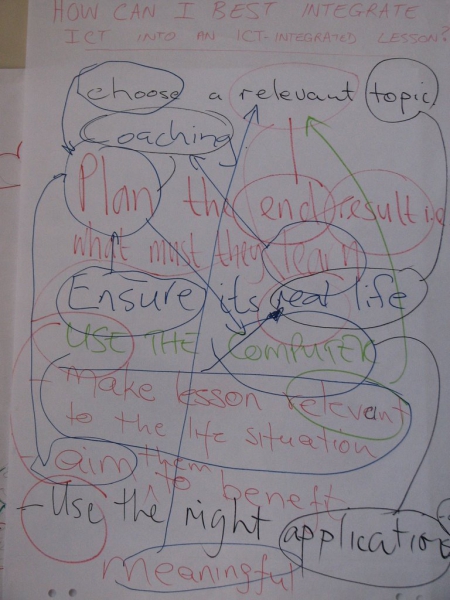 HOW CAN I BEST INTEGRATE
ICT INTO AN ICT-INTEGRATED LESSON?
choose a relevant topic
Coaching
Plan the end result i.e
what must they learn
Ensure its real life
USE THE COMPUTER
- Make lesson relevant
to the life situation
- aim them
to benefit
- Use the right application
meaningful